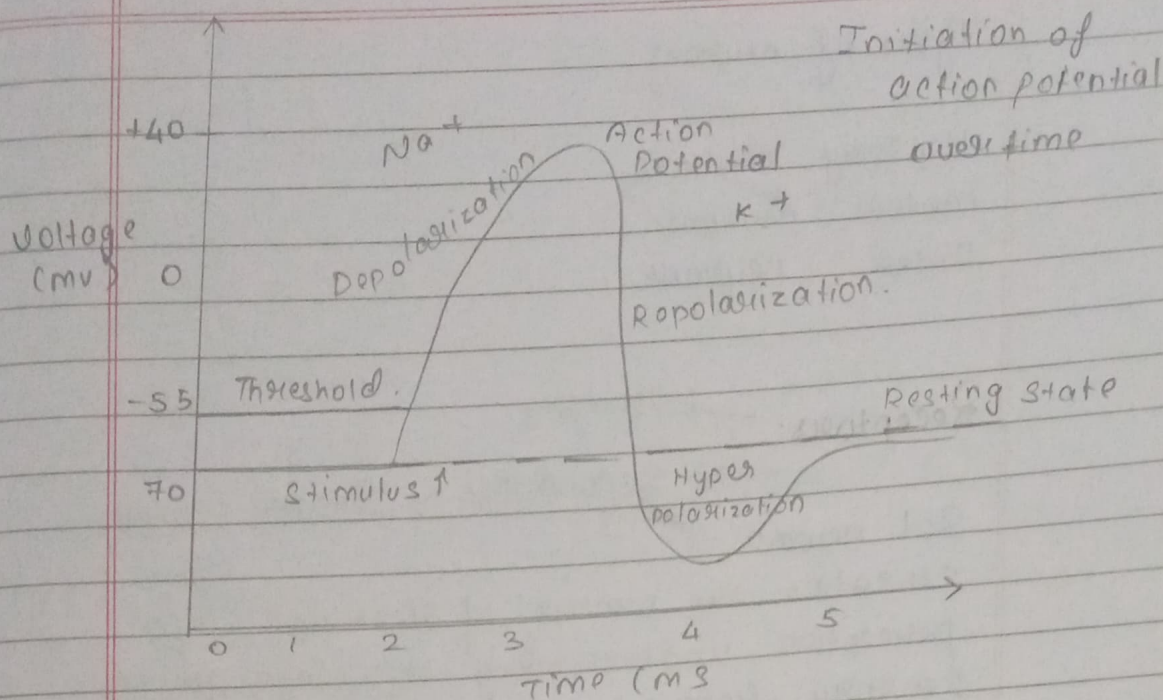 Initiation of
action potential
over time
+40
Na+
Action
Potential
K+
Voltage
(mv)
0
Depolarization
Repolarization.
-55
Threshold.
Resting state
70
Stimulus ↑
Hyper
polarization
0 1 2 3 4 5
Time (ms